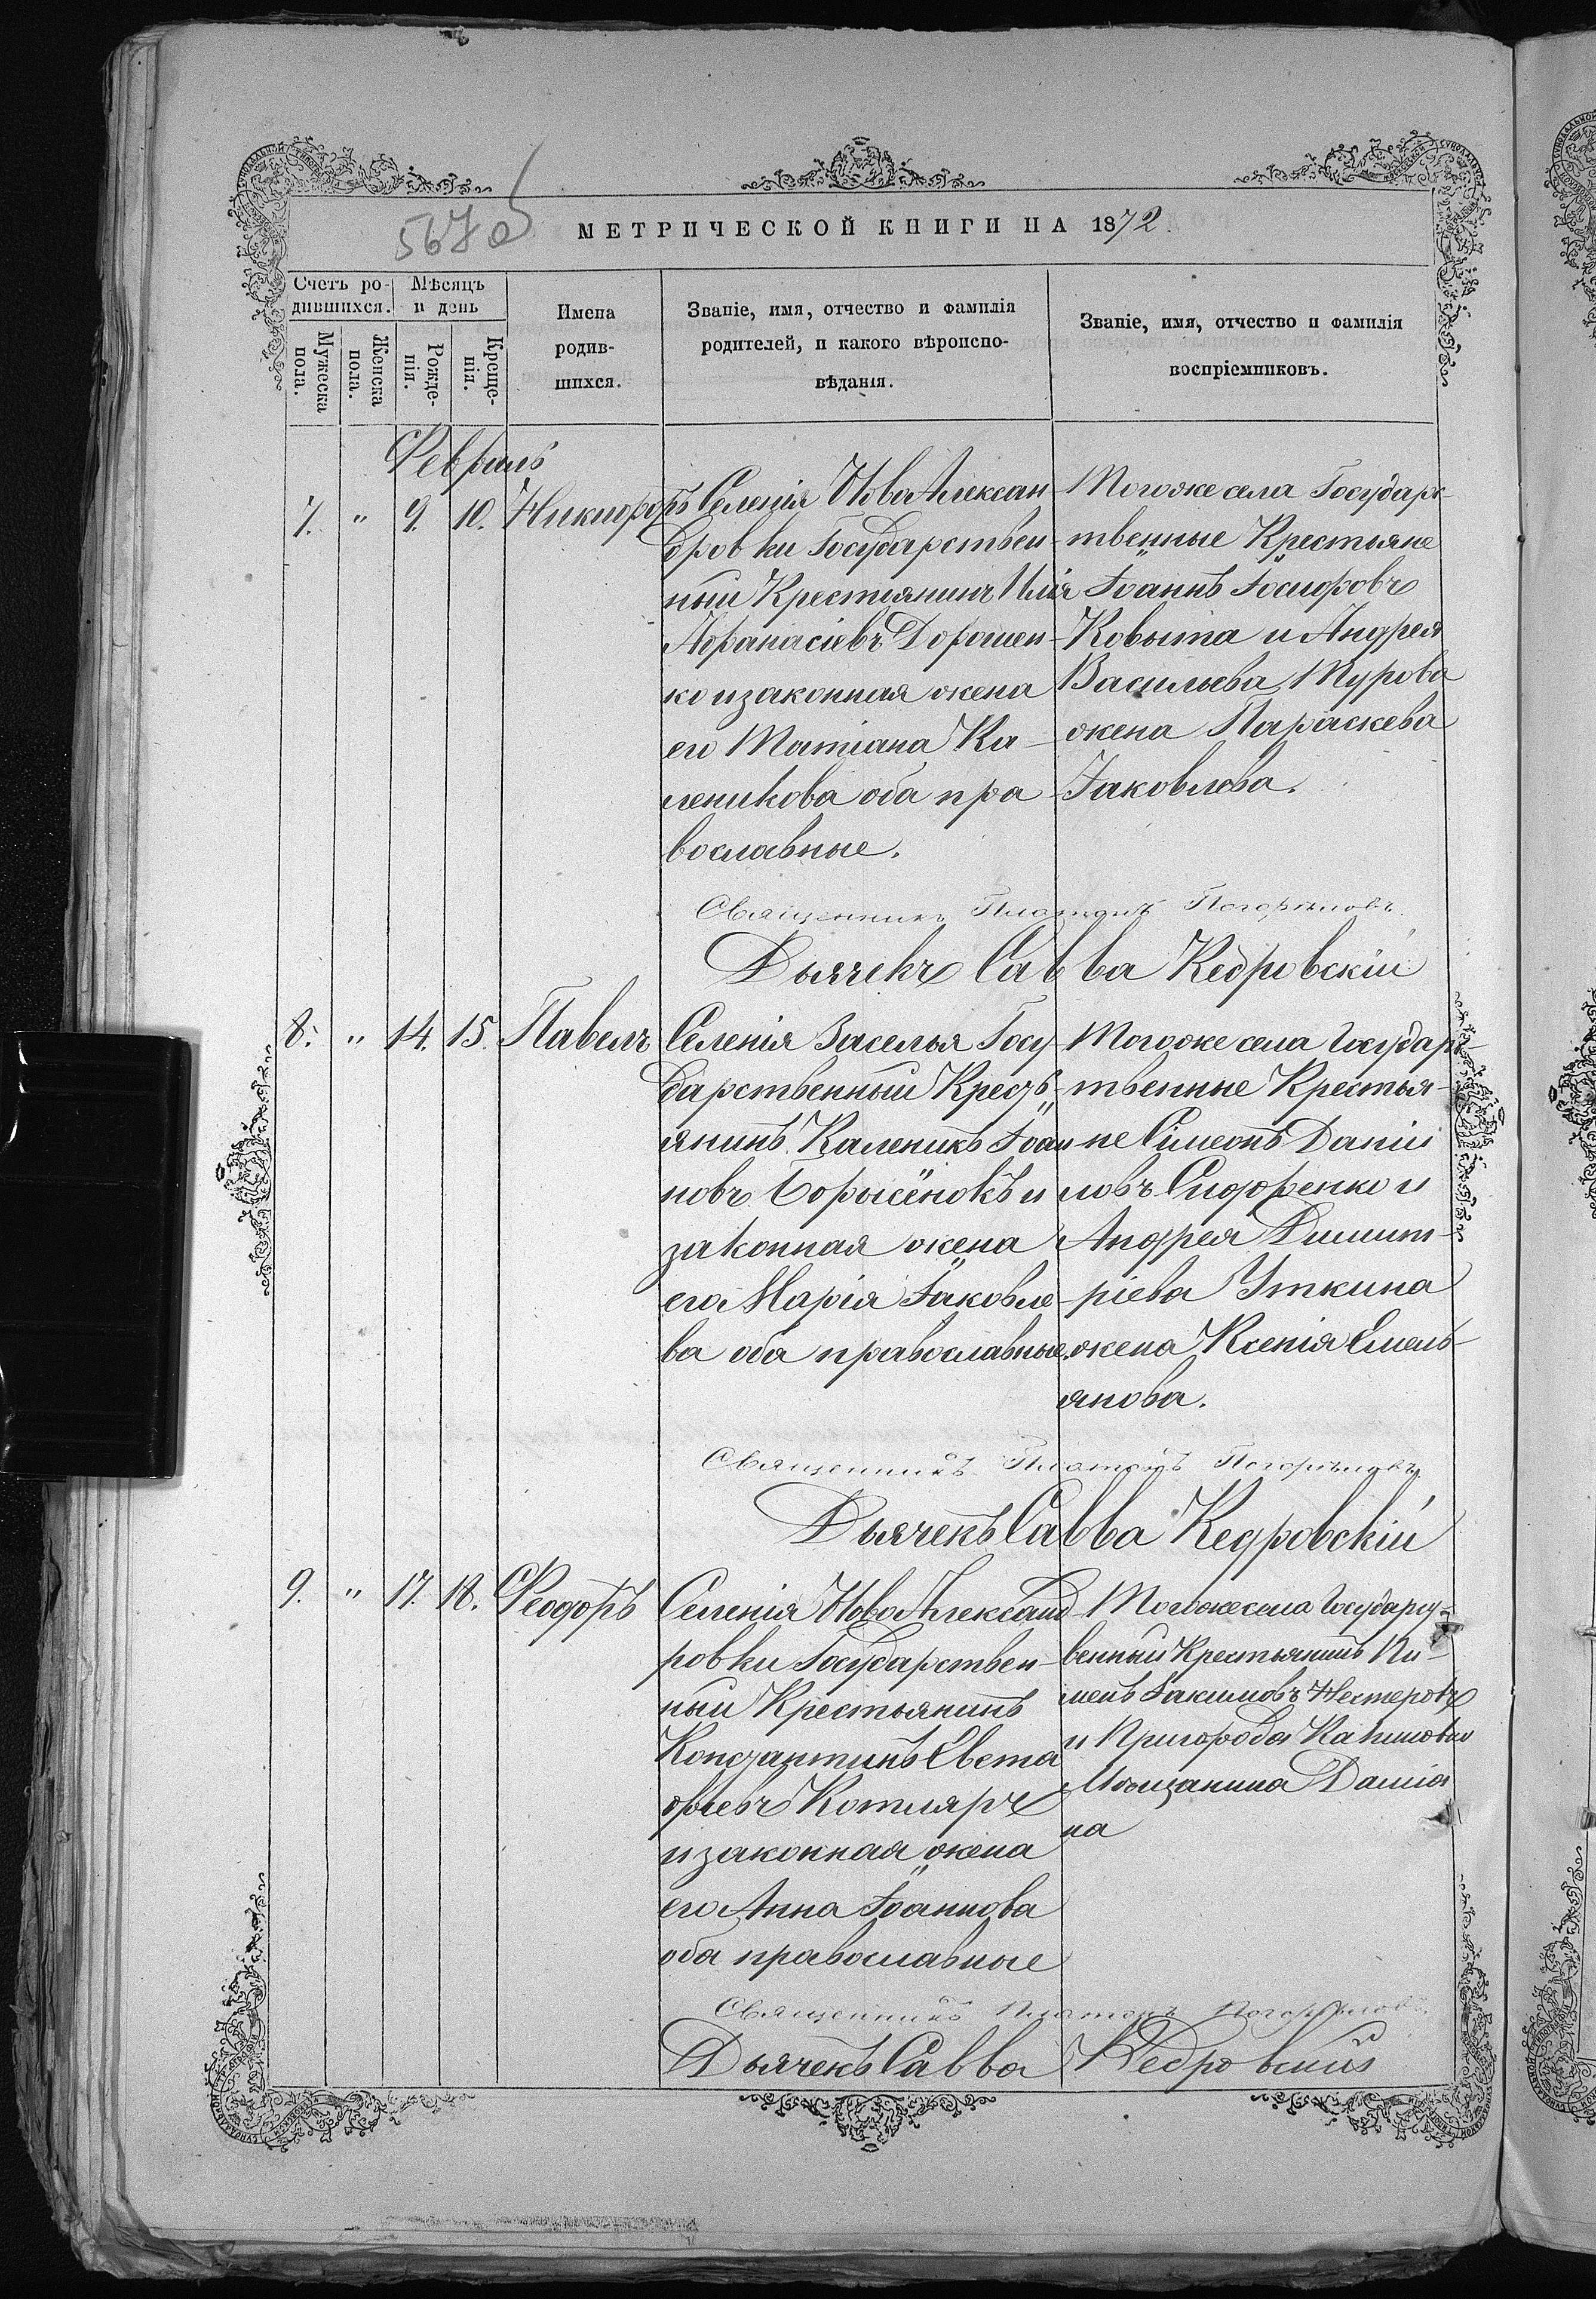 567 об
МЕТРИЧЕСКОЙ КНИГИ НА 1872.
Счетъ ро-
дившихся.
Мѣсяцъ
и день
Мужеска
пола.
Женска
пола.
Рожде-
нія.
Креще-
нія.
Имена
родив-
шихся.
Званіе, имя, отчество и фамилія
родителей, и какого вѣроиспо-
вѣданія.
Званіе, имя, отчество и фамилія
воспріемниковъ.
Февраль
7. " 9. 10. Никифоръ
Селенія НовоАлексан
дровки Государствен-
ный Крестянинъ Илія
Афанасіевъ Дорошен-
ко и законная жена
его Татіана Ка-
леникова оба пра-
вославные.
Тогоже села Государс-
твенные Крестьяне
Іоаннъ Іосифовъ
Ковыта и Андрея
Васильева Турова
жена Параскева
Іаковлева.
Священникъ Платонъ Погорѣловъ.
Дьячекъ Савва Кедровскій
8. " 14. 15. Павелъ
Селенія Заселья Госу-
дарственный Крест-
янинъ Каленикъ Іоан
новъ Борысёнокъ и
законная жена
его Марія Іаковле-
ва оба православные.
Тогоже села Государс-
твенные Крестья-
не Сімеонъ Даніи
ловъ Сидоренко и
Андрея Димит-
ріева Уткина
жена Ксенія Емель-
янова.
Священникъ Платонъ Погорѣловъ.
Дьячекъ Савва Кедровскій
9. " 17. 18. Феодоръ
Селенія НовоАлександ
ровки Государствен-
ный Крестьянинъ
Константинъ Евста
фіевъ Котляръ
и законная жена
его Анна Іоаннова
оба православные
Тогоже села Государст-
венный Крестьянинъ Пи-
менъ Іакимовъ Нестеровъ
и Пригорода
Мѣщанина
Священникъ Платонъ Погорѣловъ.
Дьячекъ Савва Кедровскій